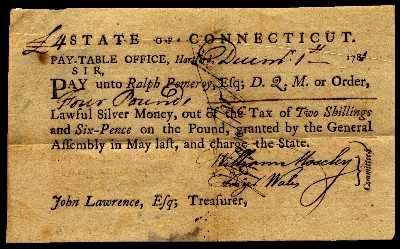 £4 STATE OF CONNECTICUT.
PAY-TABLE OFFICE, Hartford, Decemr. 1st 178
SIR,
PAY unto Ralph Pomeroy, Esq; D. Q. M. or Order,
Four Pounds
Lawful Silver Money, out of the Tax of Two Shillings
and Six-Pence on the Pound, granted by the General
Assembly in May last, and charge the State.
William Moseley
Wales
Committee
John Lawrence, Esq; Treasurer,